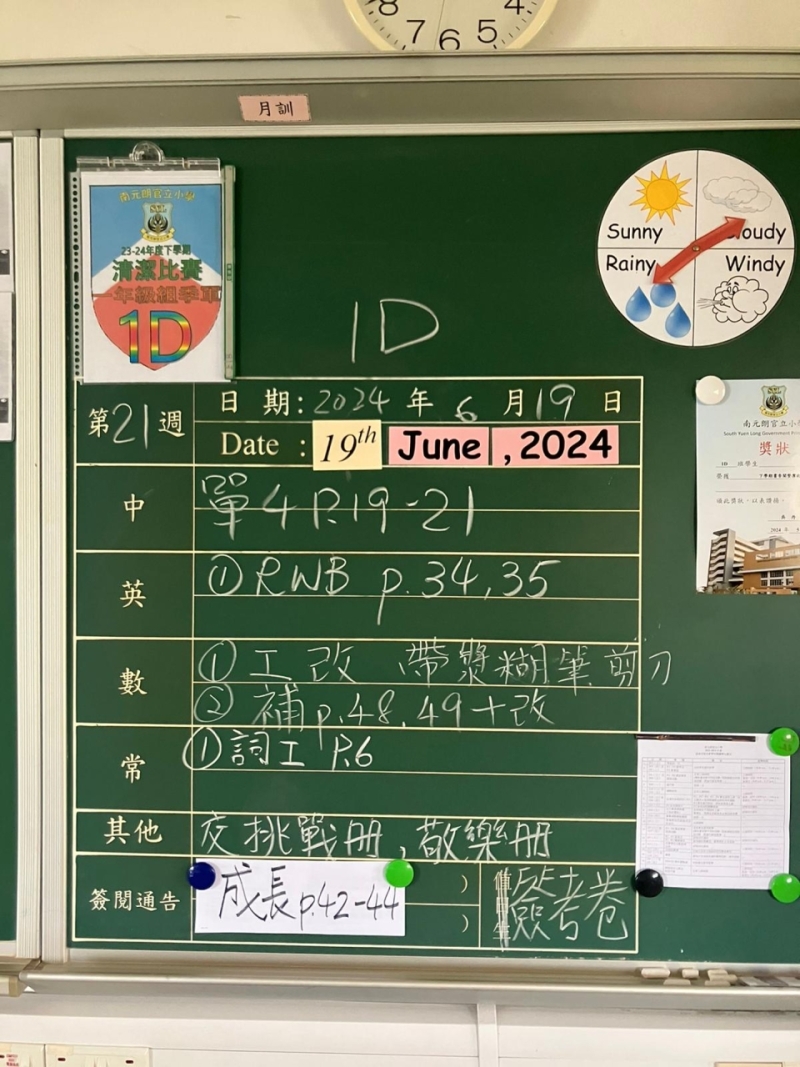 8 4
7 6 5
月訓
南元朗官立小學
23-24年度下學期
清潔比賽
一年級組季軍
1D
Sunny
Cloudy
Rainy
Windy
1D
第21週
日 期：2024 年 6 月 19 日
Date : 19th June , 2024
中
單4 P.19-21
英
① RWB p.34,35
數
① 工改 、帶漿糊筆剪刀
② 補p.48,49+改
常
① 詞工 P.6
其他
交挑戰册，敬樂册
簽閱通告
成長p.42-44
)
)
簽考卷
南元朗官立小學
South Yuen Long Government Pri
獎狀